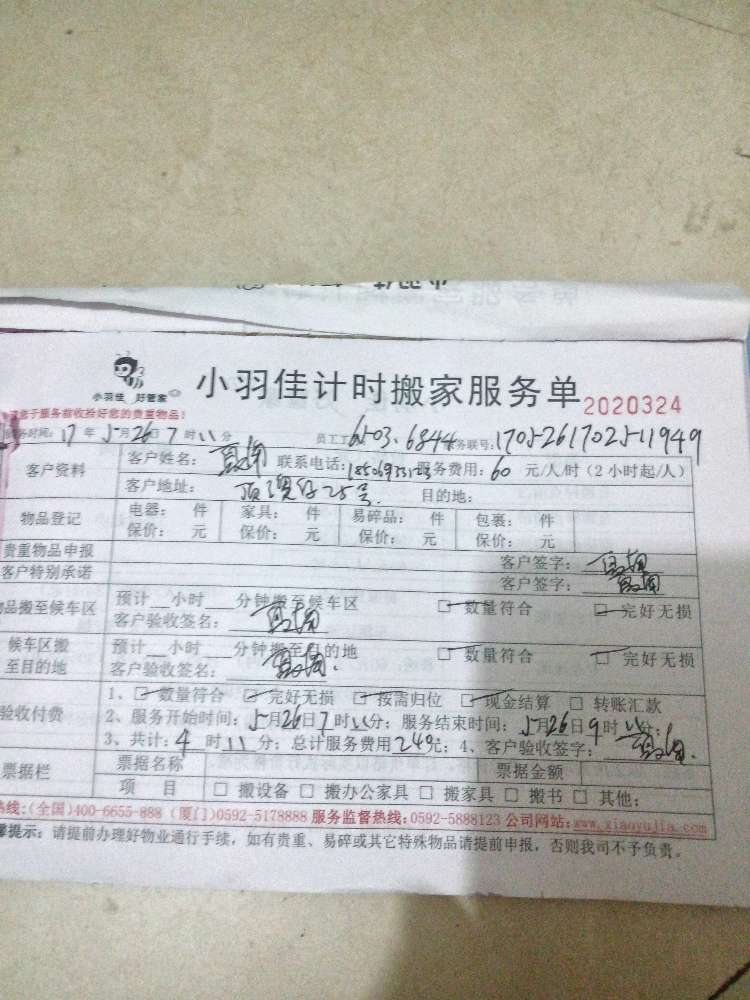 小羽佳 好管家
小羽佳计时搬家服务单 2020324
请您于服务前收拾好您的贵重物品!
务时间: 17 年 5月26日7 时 分 员工工 6503.6844 务联号:1705261702511949
客户资料 客户姓名: 联系电话: 服务费用: 60 元/人/时 (2小时起/人)
客户地址: 25号 目的地:
物品登记 电器: 件 家具: 件 易碎品: 件 包裹: 件
保价: 元 保价: 元 保价: 元 保价: 元
贵重物品申报 客户签字:
客户特别承诺 客户签字:
物品搬至候车区 预计__小时__分钟搬至候车区 □数量符合 □完好无损
客户验收签名:
候车区搬至目的地 预计__小时__分钟搬至目的地 □数量符合 □完好无损
客户验收签名:
验收付费 1、□数量符合 □完好无损 □按需归位 □现金结算 □转账汇款
2、服务开始时间: 5月26日7时 分; 服务结束时间: 5月26日9时 分;
3、共计: 4 时 分; 总计服务费用249元; 4、客户验收签字:
票据栏 票据名称 票据金额
项 目 □搬设备 □搬办公家具 □搬家具 □搬书 □其他:
热线:(全国)400-6655-888 (厦门)0592-5178888 服务监督热线:0592-5888123 公司网站:www.xiaoyujia.com
提示: 请提前办理好物业通行手续, 如有贵重、易碎或其它特殊物品请提前申报, 否则我司不予负责。